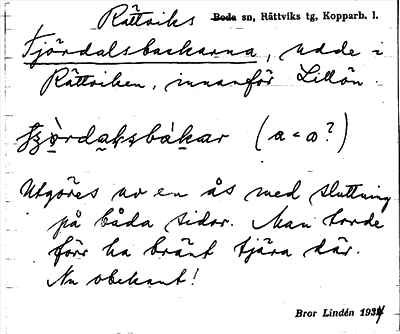 Rättviks Boda sn, Rättviks tg, Kopparb. l.
Tjärdalsbackarna, udde i
Rättviken, innanför Lillön.
(a = a?)
Utgöres av en ås med sluttning
på båda sidor. Man torde
förr ha bränt tjära där.
Nu obekant!
Bror Lindén 1934